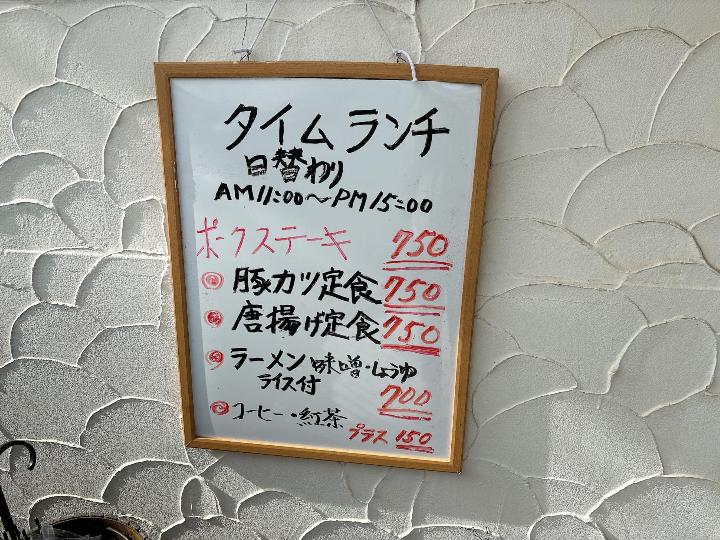 タイムランチ
日替わり
AM11:00～PM15:00
ポークステーキ 750
豚カツ定食 750
唐揚げ定食 750
ラーメン 味噌・しょうゆ
ライス付 700
コーヒー・紅茶
プラス 150